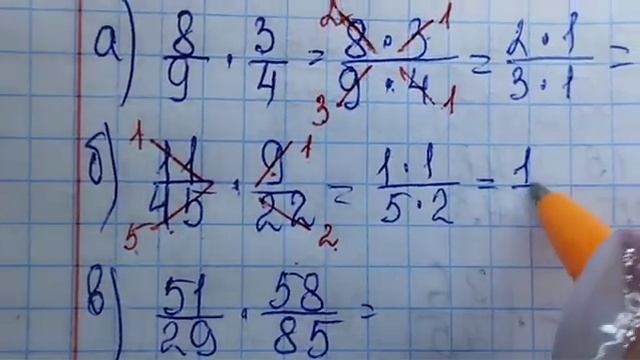 а) 8/9 · 3/4 = 8 · 3/9 · 4 = 2 · 1/3 · 1 =
2 1 3 1
б) 11/45 · 9/22 = 1 · 1/5 · 2 = 1
1 1 5 2
в) 51/29 · 58/85 =